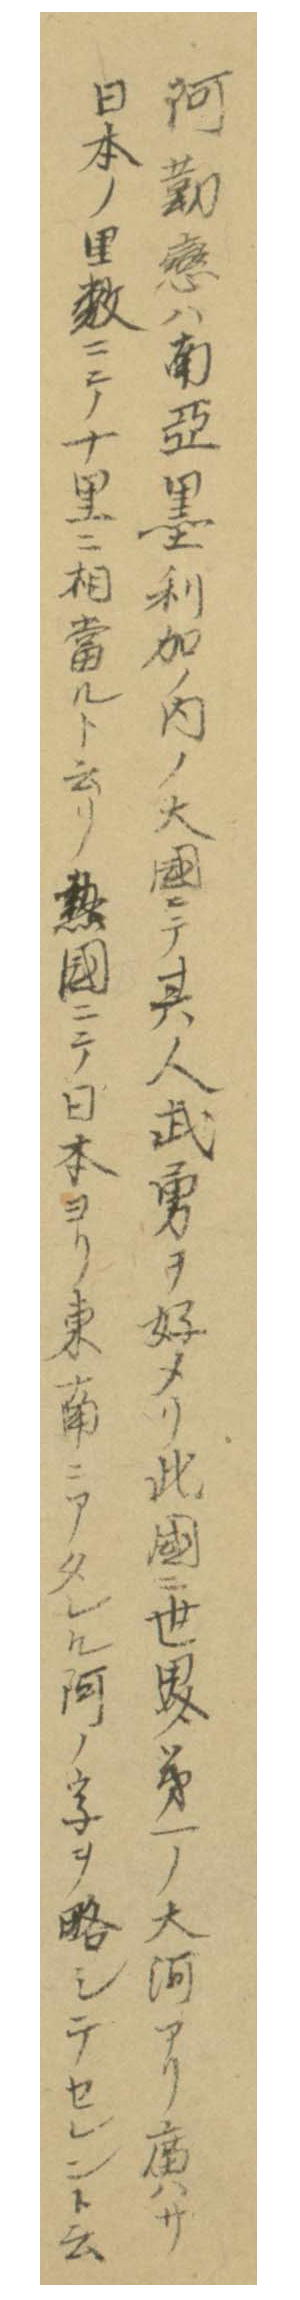 阿勒戀ハ南亞墨利加ノ内ノ大國ニテ其人武勇ヲ好メリ此國ニ世界第一ノ大河アリ廣サ
日本ノ里數ニテノ十里ニ相當ルト云リ熱國ニテ日本ヨリ東南ニアタレル阿ノ字ヲ略シテセレント云